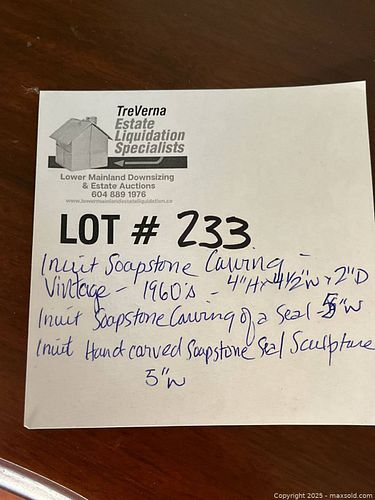 TreVerna
Estate
Liquidation
Specialists
Lower Mainland Downsizing
& Estate Auctions
604 889 1976
www.lowermainlandestateliquidation.ca
LOT # 233
Inuit Soapstone Carving -
Vintage - 1960's - 4"H x 4 1/2"W x 2"D
Inuit Soapstone Carving of a Seal - 5"W
Inuit Hand carved Soapstone Seal Sculpture
5"W
Copyright 2025 - maxsold.com